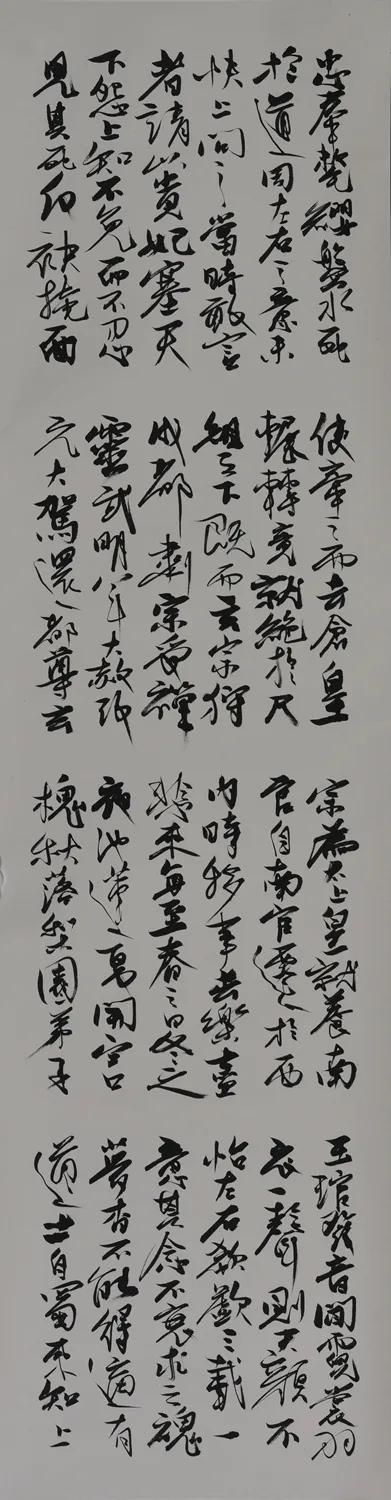 忠奉氂纓盤水死
於道周左右之意未
快上問之當時敢言
者請以貴妃塞天
下怨上知不免而不忍
見其死反袂掩面
使牽之而去倉皇
輾轉竟就絕於尺
組之下既而玄宗狩
成都肅宗受禪
靈武明年大赦改
元大駕還都尊玄
宗為太上皇就養南
宮自南宮遷於西
內時移事去樂盡
悲來每至春之日冬之
夜池蓮夏開宮
槐秋落梨園弟子
玉琯發音聞霓裳羽
衣一聲則天顏不
怡左右歔欷三載一
意其念不衰求之魂
夢杳不能得適有
道士自蜀來知上